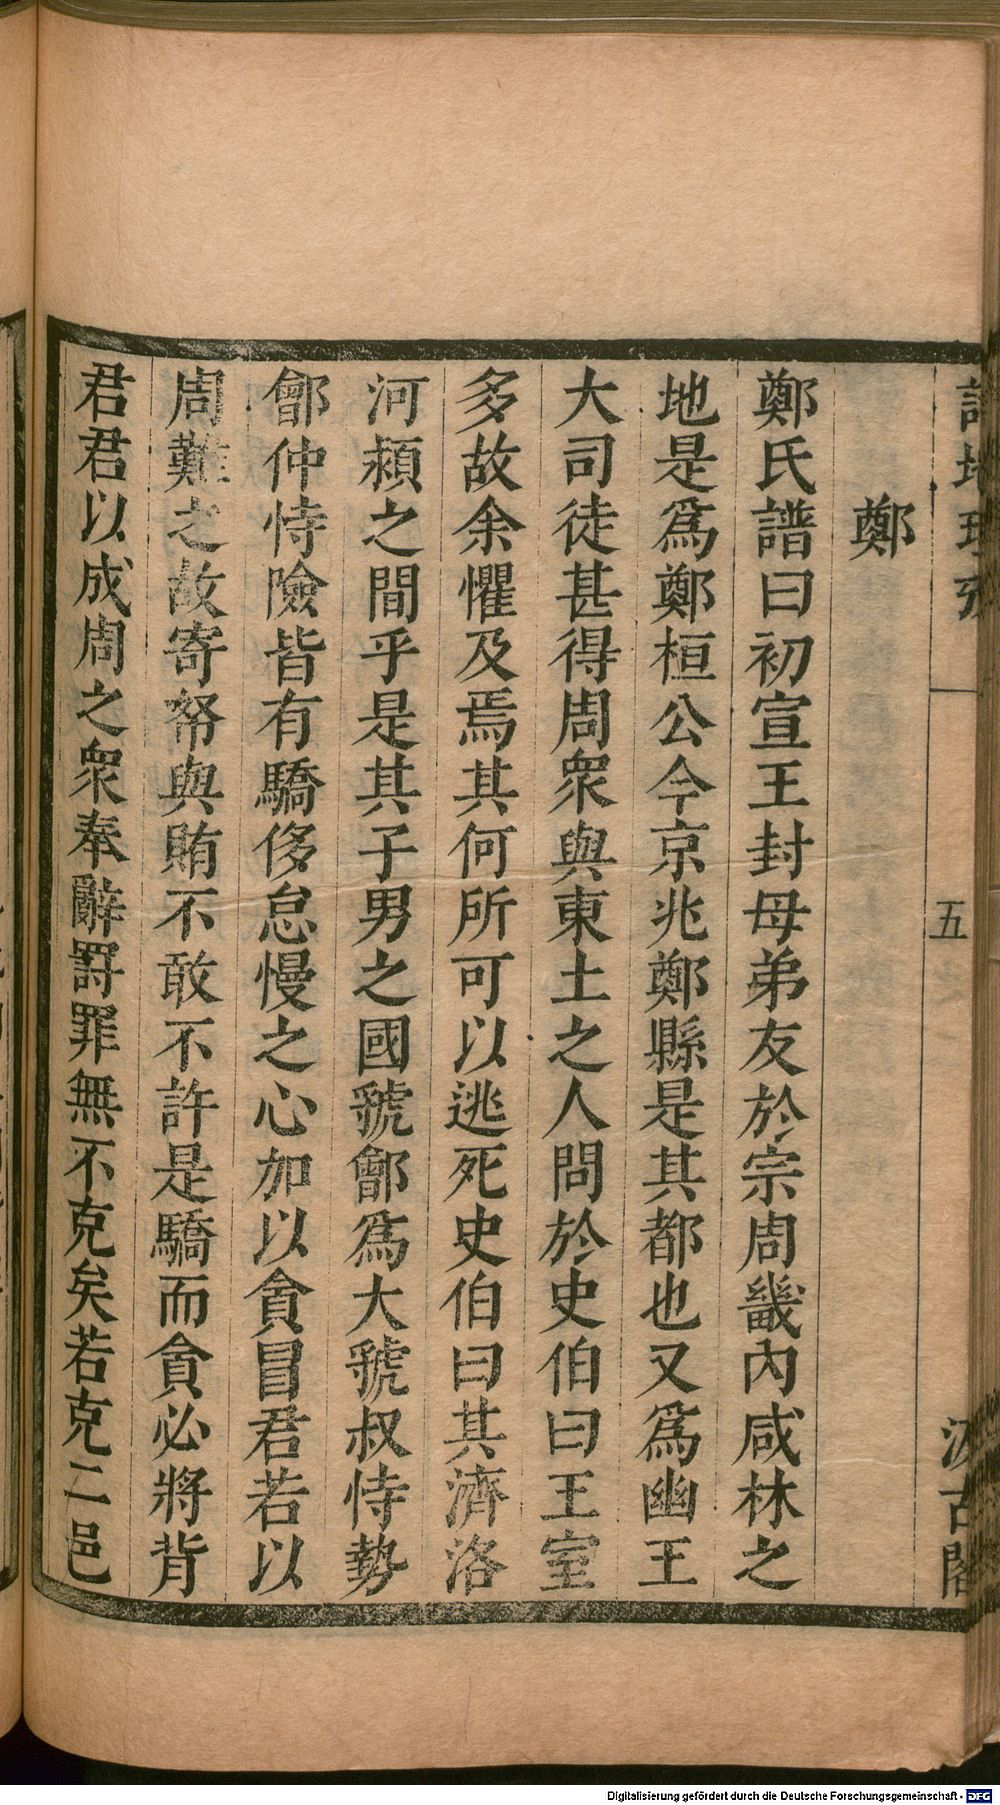 詩地理攷
五
汲古閣
鄭
鄭氏譜曰初宣王封母弟友於宗周畿內咸林之
地是爲鄭桓公今京兆鄭縣是其都也又爲幽王
大司徒甚得周衆與東土之人問於史伯曰王室
多故余懼及焉其何所可以逃死史伯曰其濟洛
河潁之間乎是其子男之國虢鄶爲大虢叔恃勢
鄶仲恃險皆有驕侈怠慢之心加以貪冒君若以
周難之故寄帑與賄不敢不許是驕而貪必將背
君君以成周之衆奉辭罰罪無不克矣若克二邑
Digitalisierung gefördert durch die Deutsche Forschungsgemeinschaft - DFG